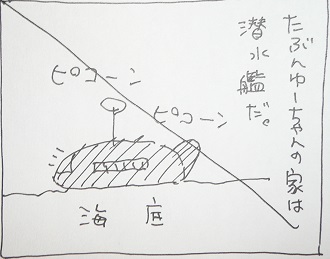 たぶんゆーちゃんの家は
潜水艦だ。
ピコーン
ピコーン
海底